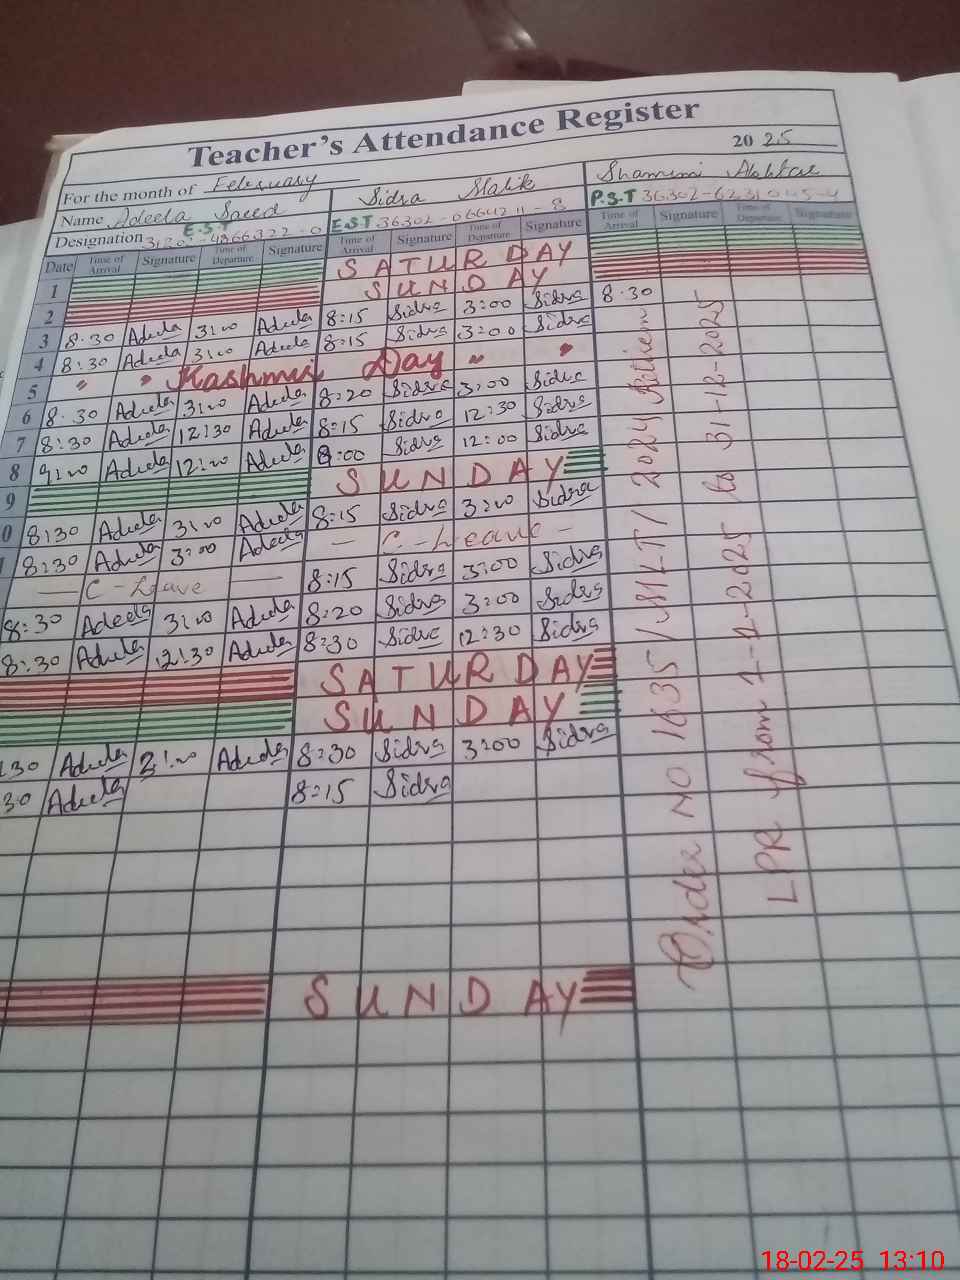 Teacher's Attendance Register
20 25
For the month of February
Name Adeela Saeed Sidra Malik Shamim Akhtar
Designation E.S.T E.S.T 36302-0664211-8 P.S.T
Date Time of Arrival Signature Time of Departure Signature Time of Arrival Signature Time of Departure Signature Time of Arrival Signature Time of Departure Signature
1 SATURDAY
2 SUNDAY
3 8:30 Adeela 3:00 Adeela 8:15 Sidra 3:00 Sidra 8:30
4 8:30 Adeela 3:00 Adeela 8:15 Sidra 3:00 Sidra
5 " " Kashmir Day " "
6 8:30 Adeela 3:00 Adeela 8:20 Sidra 3:00 Sidra
7 8:30 Adeela 12:30 Adeela 8:15 Sidra 12:30 Sidra
8 9:00 Adeela 12:00 Adeela :00 Sidra 12:00 Sidra
9 SUNDAY
0 8:30 Adeela 3:00 Adeela 8:15 Sidra 3:00 Sidra
8:30 Adeela 3:00 Adeela - C-Leave -
- C-Leave - 8:15 Sidra 3:00 Sidra
8:30 Adeela 3:00 Adeela 8:20 Sidra 3:00 Sidra
8:30 Adeela 12:30 Adeela 8:30 Sidra 12:30 Sidra
SATURDAY
SUNDAY
:30 Adeela 3:00 Adeela 8:30 Sidra 3:00 Sidra
30 Adeela 8:15 Sidra
SUNDAY
Order NO 1635 / 2024
LPR from 1-1-2025 to 31-12-2025
18-02-25 13:10